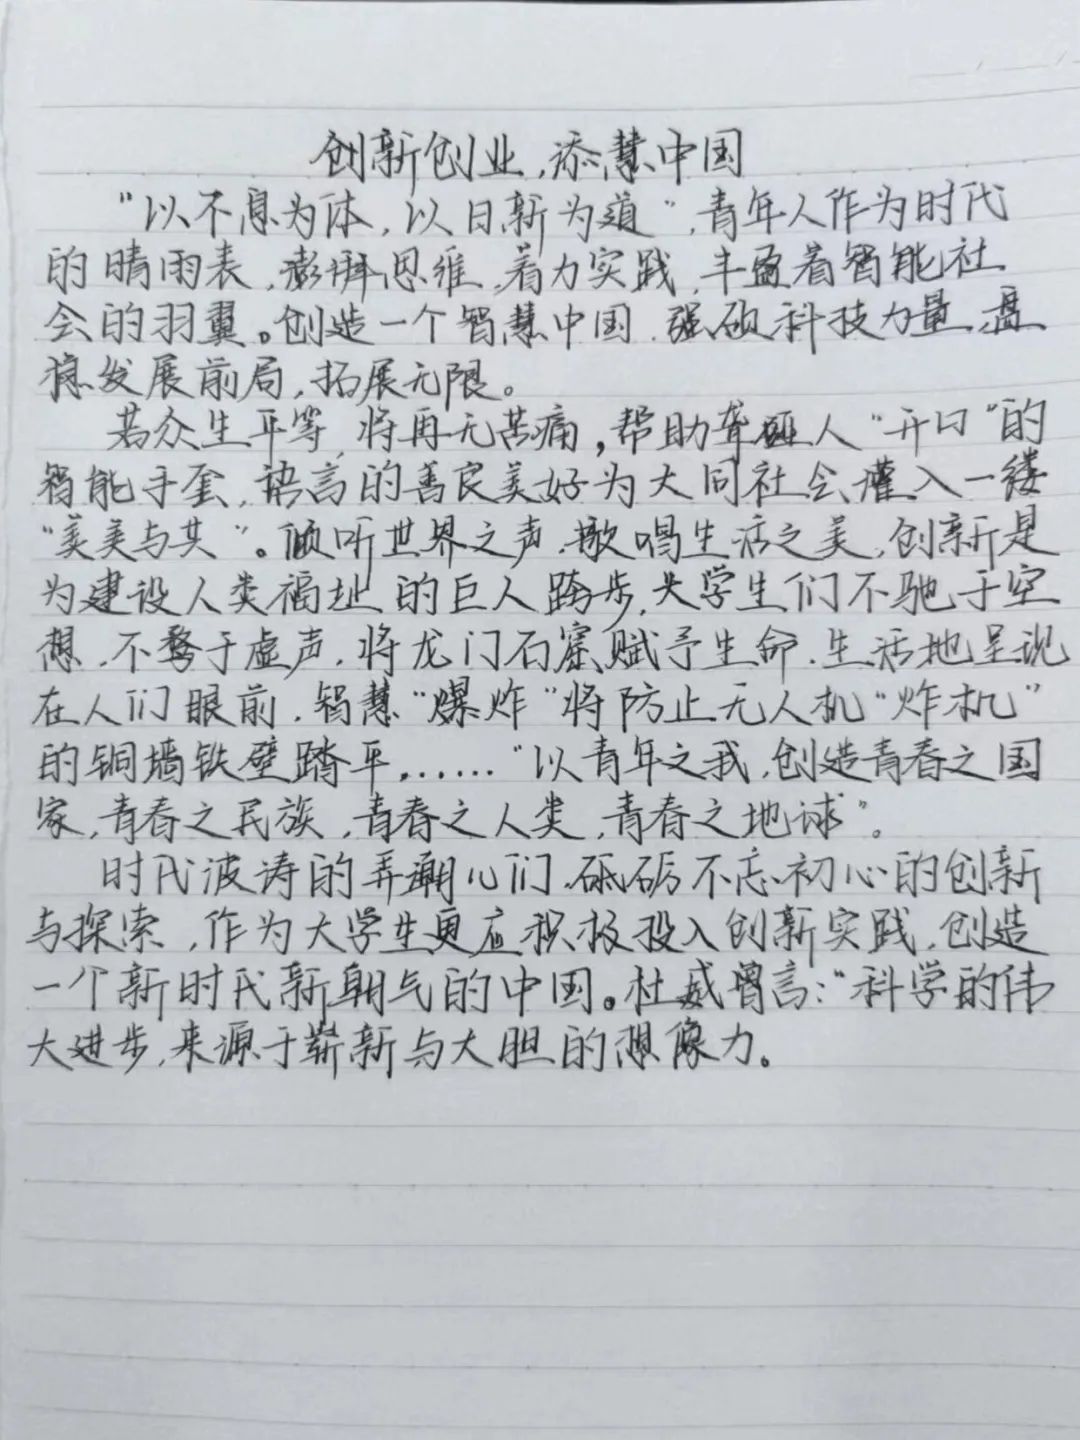 创新创业，添慧中国
“以不息为体，以日新为道”，青年人作为时代
的晴雨表，澎湃思维，着力实践，丰盈着智能社
会的羽翼。创造一个智慧中国，强硕科技力量，
稳发展前局，拓展无限。
若众生平等，将再无苦痛，帮助聋哑人“开口”的
智能手套，语言的善良美好为大同社会灌入一缕
“美美与共”。倾听世界之声，歌唱生活之美，创新是
为建设人类福址的巨人跨步，大学生们不驰于空
想，不骛于虚声，将龙门石窟赋予生命，生活地呈现
在人们眼前，智慧“爆炸”将防止无人机“炸机”
的铜墙铁壁踏平，……“以青年之我，创造青春之国
家，青春之民族，青春之人类，青春之地球”。
时代波涛的弄潮儿们，砥砺不忘初心的创新
与探索，作为大学生更应积极投入创新实践，创造
一个新时代新朝气的中国。杜威曾言：“科学的伟
大进步，来源于崭新与大胆的想像力。